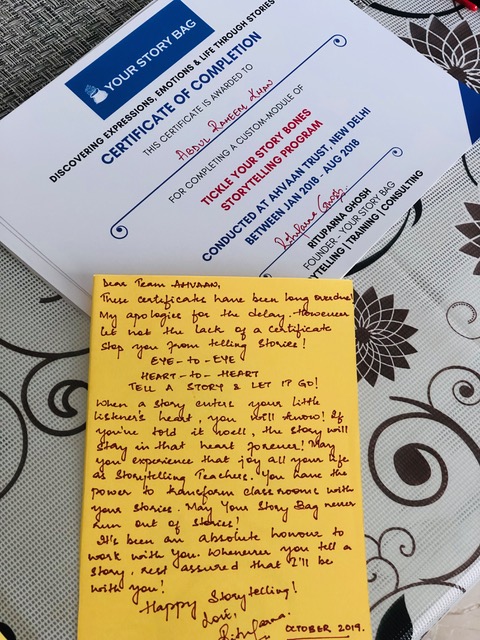 YOUR STORY BAG
DISCOVERING EXPRESSIONS, EMOTIONS & LIFE THROUGH STORIES
CERTIFICATE OF COMPLETION
THIS CERTIFICATE IS AWARDED TO
Abdul Raheem Khan
FOR COMPLETING A CUSTOM-MODULE OF
TICKLE YOUR STORY BONES
STORYTELLING PROGRAM
CONDUCTED AT AHVAAN TRUST, NEW DELHI
BETWEEN JAN 2018 - AUG 2018
Rituparna Ghosh
RITUPARNA GHOSH
FOUNDER - YOUR STORY BAG
YTELLING | TRAINING | CONSULTING
Dear Team AHVAAN,
These certificates have been long overdue!
My apologies for the delay. However
let not the lack of a certificate
stop you from telling stories!
EYE-to-EYE
HEART-to-HEART
TELL A STORY & LET IT GO!
When a story enters your little
listener's heart, you will know! If
you've told it well, the story will
stay in that heart forever! May
you experience that joy all your life
as Storytelling Teachers. You have the
power to transform classrooms with
your stories. May Your Story Bag never
run out of stories!
It's been an absolute honour to
work with you. Whenever you tell a
story, rest assured that I'll be
with you!
Happy Storytelling!
Love,
Rituparna.
OCTOBER 2019.